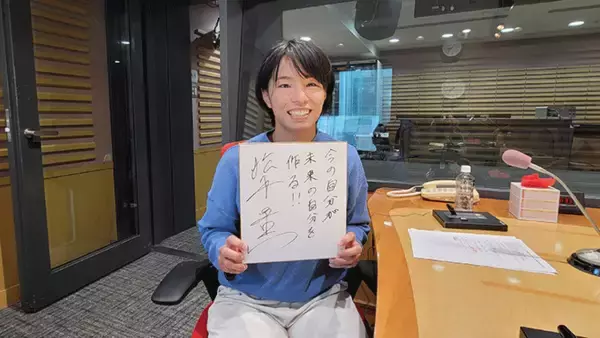 今の自分が
未来の自分を
作る!!